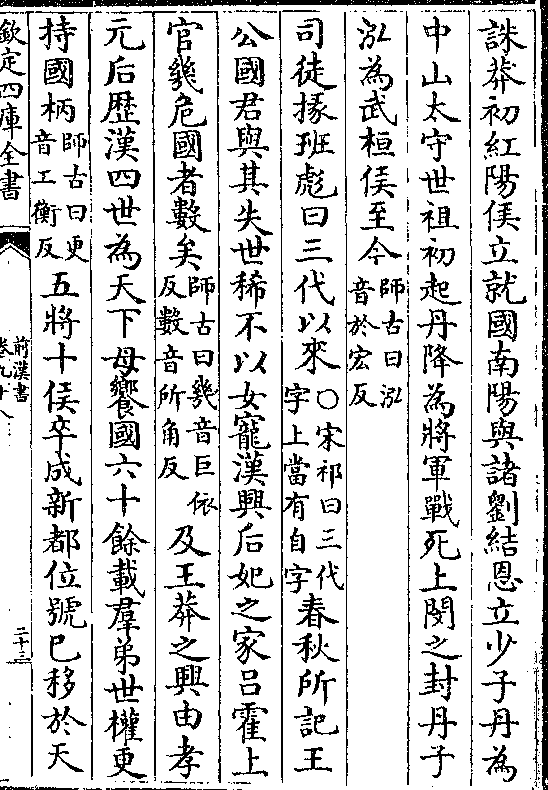 誅莽初紅陽侯立就國南陽與諸劉結恩立少子丹為
中山太守世祖初起丹降為將軍戰死上閔之封丹子
泓為武桓侯至今師古曰泓音於宏反
司徒掾班彪曰三代以來○宋祁曰三代字上當有自字春秋所記王
公國君與其失世稀不以女寵漢興后妃之家吕霍上
官㡬危國者數矣師古曰㡬音巨依反數音所角反及王莽之興由孝
元后歴漢四世為天下母饗國六十餘載羣弟世權更
持國柄師古曰更音工衡反五將十侯卒成新都位號已移於天
欽定四庫全書
前漢書
卷九十八
二十三